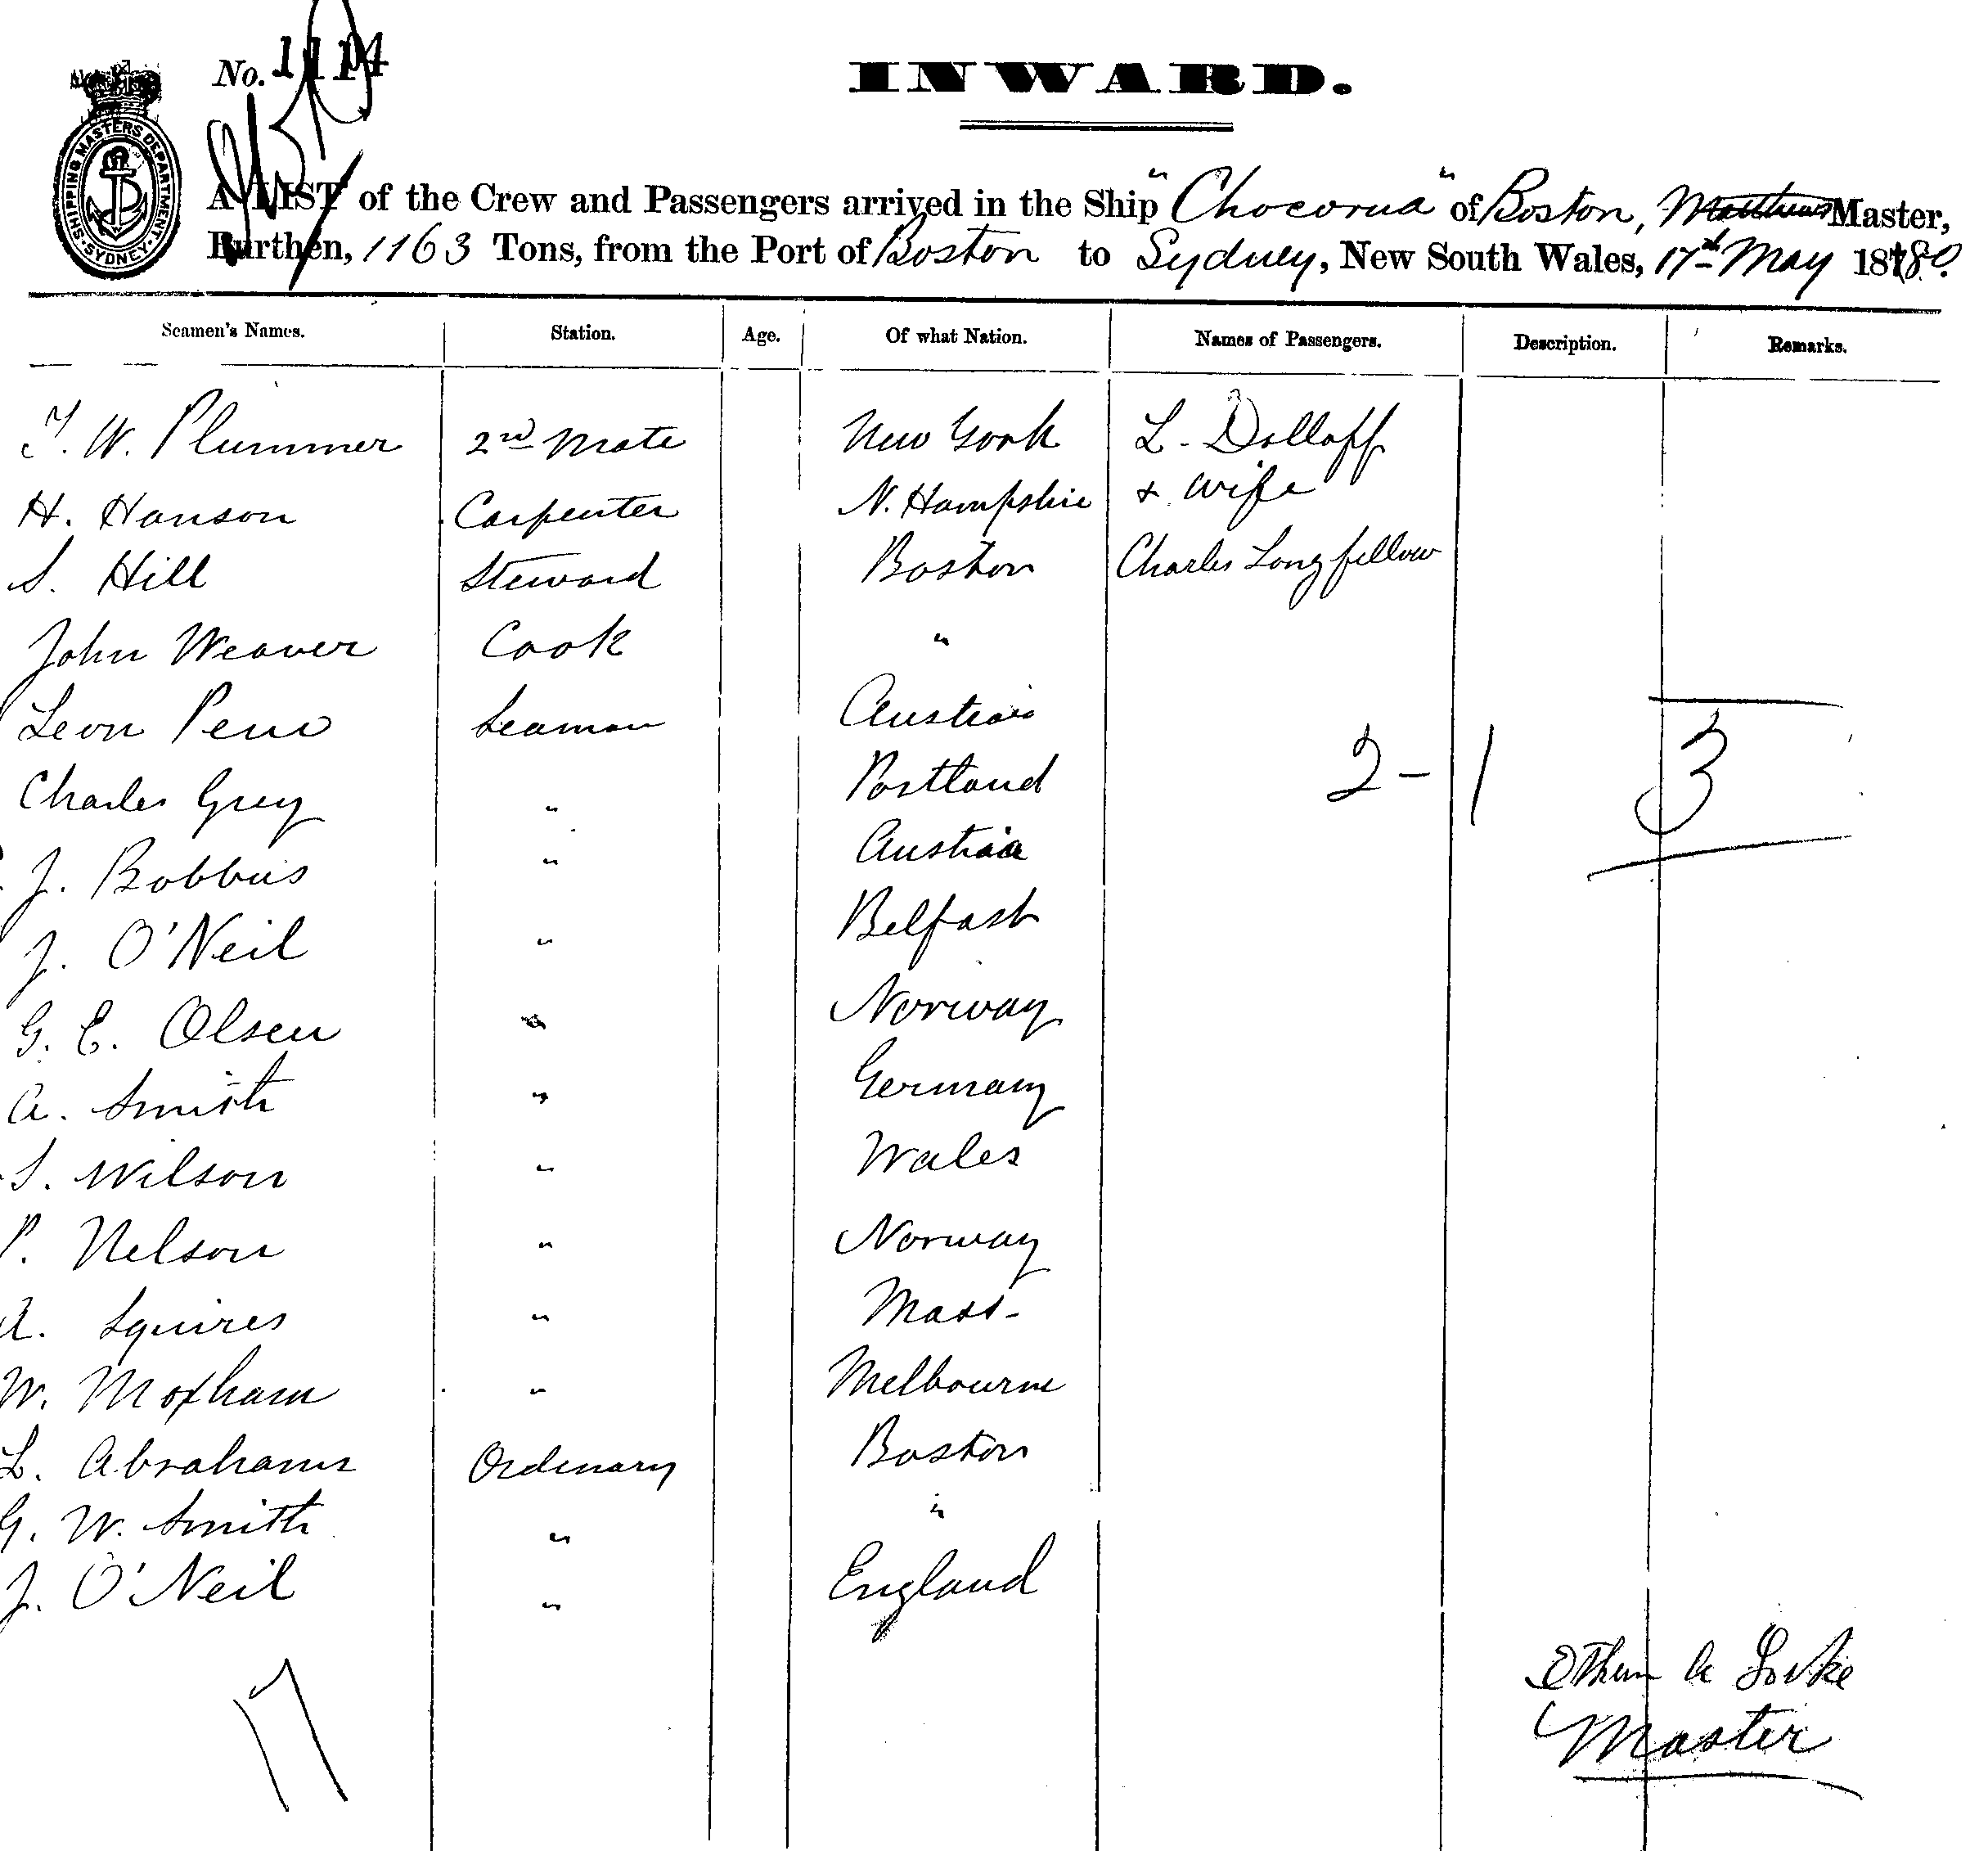 No. 1114
INWARD.
SHIPPING MASTERS DEPARTMENT SYDNEY
A LIST of the Crew and Passengers arrived in the Ship "Chocorua" of Boston, Matthews Master,
Burthen, 1163 Tons, from the Port of Boston to Sydney, New South Wales, 17th May 1880.
Seamen's Names. Station. Age. Of what Nation. Names of Passengers. Description. Remarks.
T. W. Plummer 2nd Mate New York L. Dolloff
H. Hanson Carpenter N. Hampshire & wife
S. Hill Steward Boston Charles Longfellow
John Weaver Cook "
Leon Seaman Austria
Charles Grey " Portland 2 - 1 3
J. " Austria
J. O'Neil " Belfast
G. E. Olsen " Norway
A. Smith " Germany
S. Wilson " Wales
P. Nelson " Norway
A. Squires " Mass-
W. Moxham " Melbourne
L. Abrahams Ordinary Boston
G. W. Smith " "
J. O'Neil " England
17
A Locke
Master